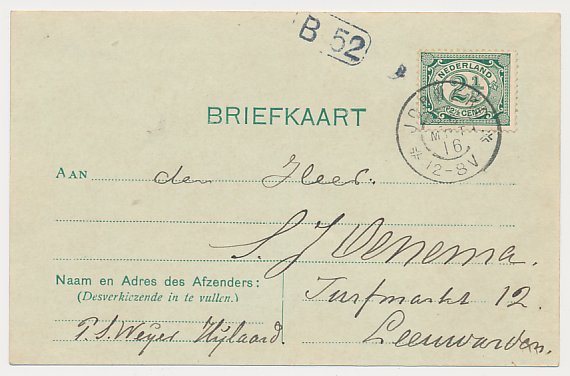 B 52
NEDERLAND
2½
(2½ CENT)
16
12-8V
BRIEFKAART
AAN den Heer.
S. J Venema.
Naam en Adres des Afzenders:
(Desverkiezende in te vullen.)
Turfmarkt 12.
Leeuwarden.
P. S. Weyer Hylaard.